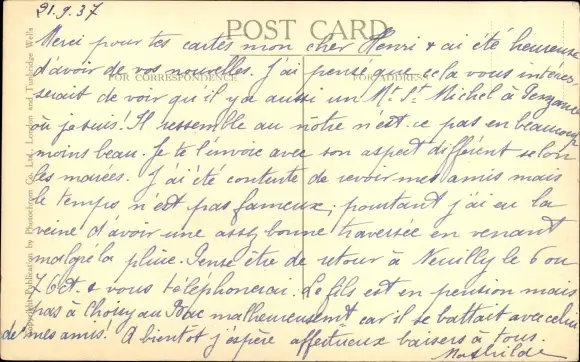 21.9.37
POST CARD
FOR CORRESPONDENCE
FOR ADDRESS
Merci pour tes cartes mon cher Henri & ai été heureuse
d'avoir de vos nouvelles. J'ai pensé que cela vous intéres-
serait de voir qu'il y a aussi un Mt St Michel à Penzance
où je suis! Il ressemble au nôtre n'est-ce pas en beaucoup
moins beau. Je te l'envoie avec son aspect différent selon
les marées. J'ai été contente de revoir mes amis mais
le temps n'est pas fameux, pourtant j'ai eu la
veine d'avoir une assez bonne traversée en venant
malgré la pluie. Pense être de retour à Neuilly le 6 ou
7 Oct. & vous téléphonerai. Le fils est en pension mais
pas à Choisy au Bac malheureusement car il se battait avec celui
de mes amis! A bientôt j'espère affectueux baisers à tous.
Mathilde
Publication by Photochrom Co. Ltd., London and Tunbridge Wells